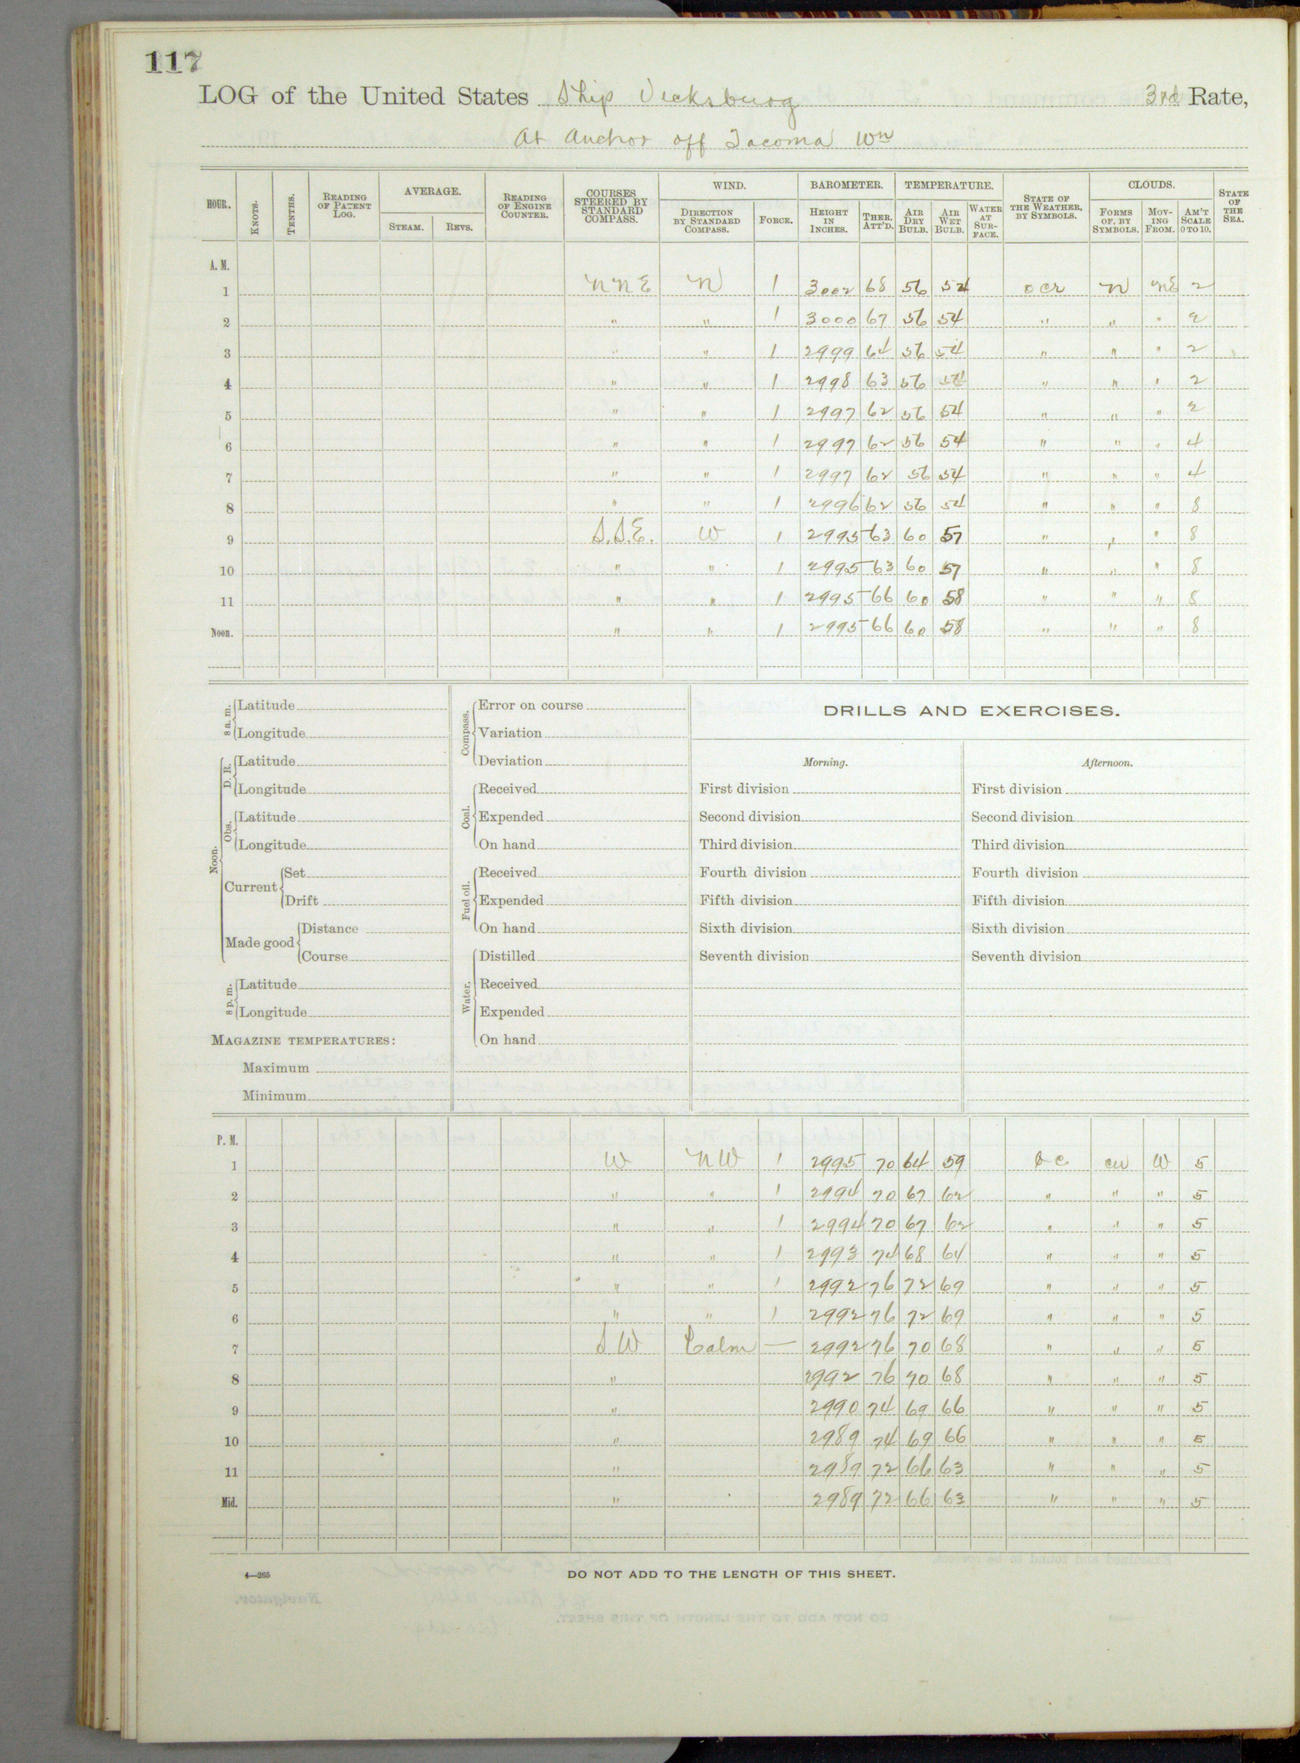 117
LOG of the United States Ship Vicksburg 3rd Rate,
At Anchor off Tacoma Wn
HOUR. KNOTS. TENTHS. READING OF PATENT LOG. AVERAGE. STEAM. REVS. READING OF ENGINE COUNTER. COURSES STEERED BY STANDARD COMPASS. WIND. DIRECTION BY STANDARD COMPASS. FORCE. BAROMETER. HEIGHT IN INCHES. THER. ATT'D. TEMPERATURE. AIR DRY BULB. AIR WET BULB. WATER AT SURFACE. STATE OF THE WEATHER, BY SYMBOLS. CLOUDS. FORMS OF, BY SYMBOLS. MOVING FROM. AM'T SCALE 0 TO 10. STATE OF THE SEA.
A. M.
1 NNE N 1 3002 68 56 54 ocr N NE 2
2 " " 1 3000 67 56 54 " " " 2
3 " " 1 2999 64 56 54 " " " 2
4 " " 1 2998 63 56 54 " " " 2
5 " " 1 2997 62 56 54 " " " 2
6 " " 1 2997 62 56 54 " " " 4
7 " " 1 2997 62 56 54 " " " 4
8 " " 1 2996 62 56 54 " " " 8
9 S.S.E. W 1 2995 63 60 57 " " " 8
10 " " 1 2995 63 60 57 " " " 8
11 " " 1 2995 66 60 58 " " " 8
Noon. " " 1 2995 66 60 58 " " " 8
8 a. m. Latitude
Longitude
Noon. D. R. Latitude
Longitude
Obs. Latitude
Longitude
Current Set
Drift
Made good Distance
Course
8 p. m. Latitude
Longitude
MAGAZINE TEMPERATURES:
Maximum
Minimum
Compass. Error on course
Variation
Deviation
Coal. Received
Expended
On hand
Fuel oil. Received
Expended
On hand
Water. Distilled
Received
Expended
On hand
DRILLS AND EXERCISES.
Morning.
First division
Second division
Third division
Fourth division
Fifth division
Sixth division
Seventh division
Afternoon.
First division
Second division
Third division
Fourth division
Fifth division
Sixth division
Seventh division
P. M.
1 W NW 1 2995 70 64 59 cu W 5
2 " " 1 2994 70 67 62 " " " 5
3 " " 1 2994 70 67 62 " " " 5
4 " " 1 2993 74 68 64 " " " 5
5 " " 1 2992 76 72 69 " " " 5
6 " " 1 2992 76 72 69 " " " 5
7 SW Calm — 2992 76 70 68 " " " 5
8 " 2992 76 70 68 " " " 5
9 " 2990 74 69 66 " " " 5
10 " 2989 74 69 66 " " " 5
11 " 2989 72 66 63 " " " 5
Mid. " 2989 72 66 63 " " " 5
4—265
DO NOT ADD TO THE LENGTH OF THIS SHEET.